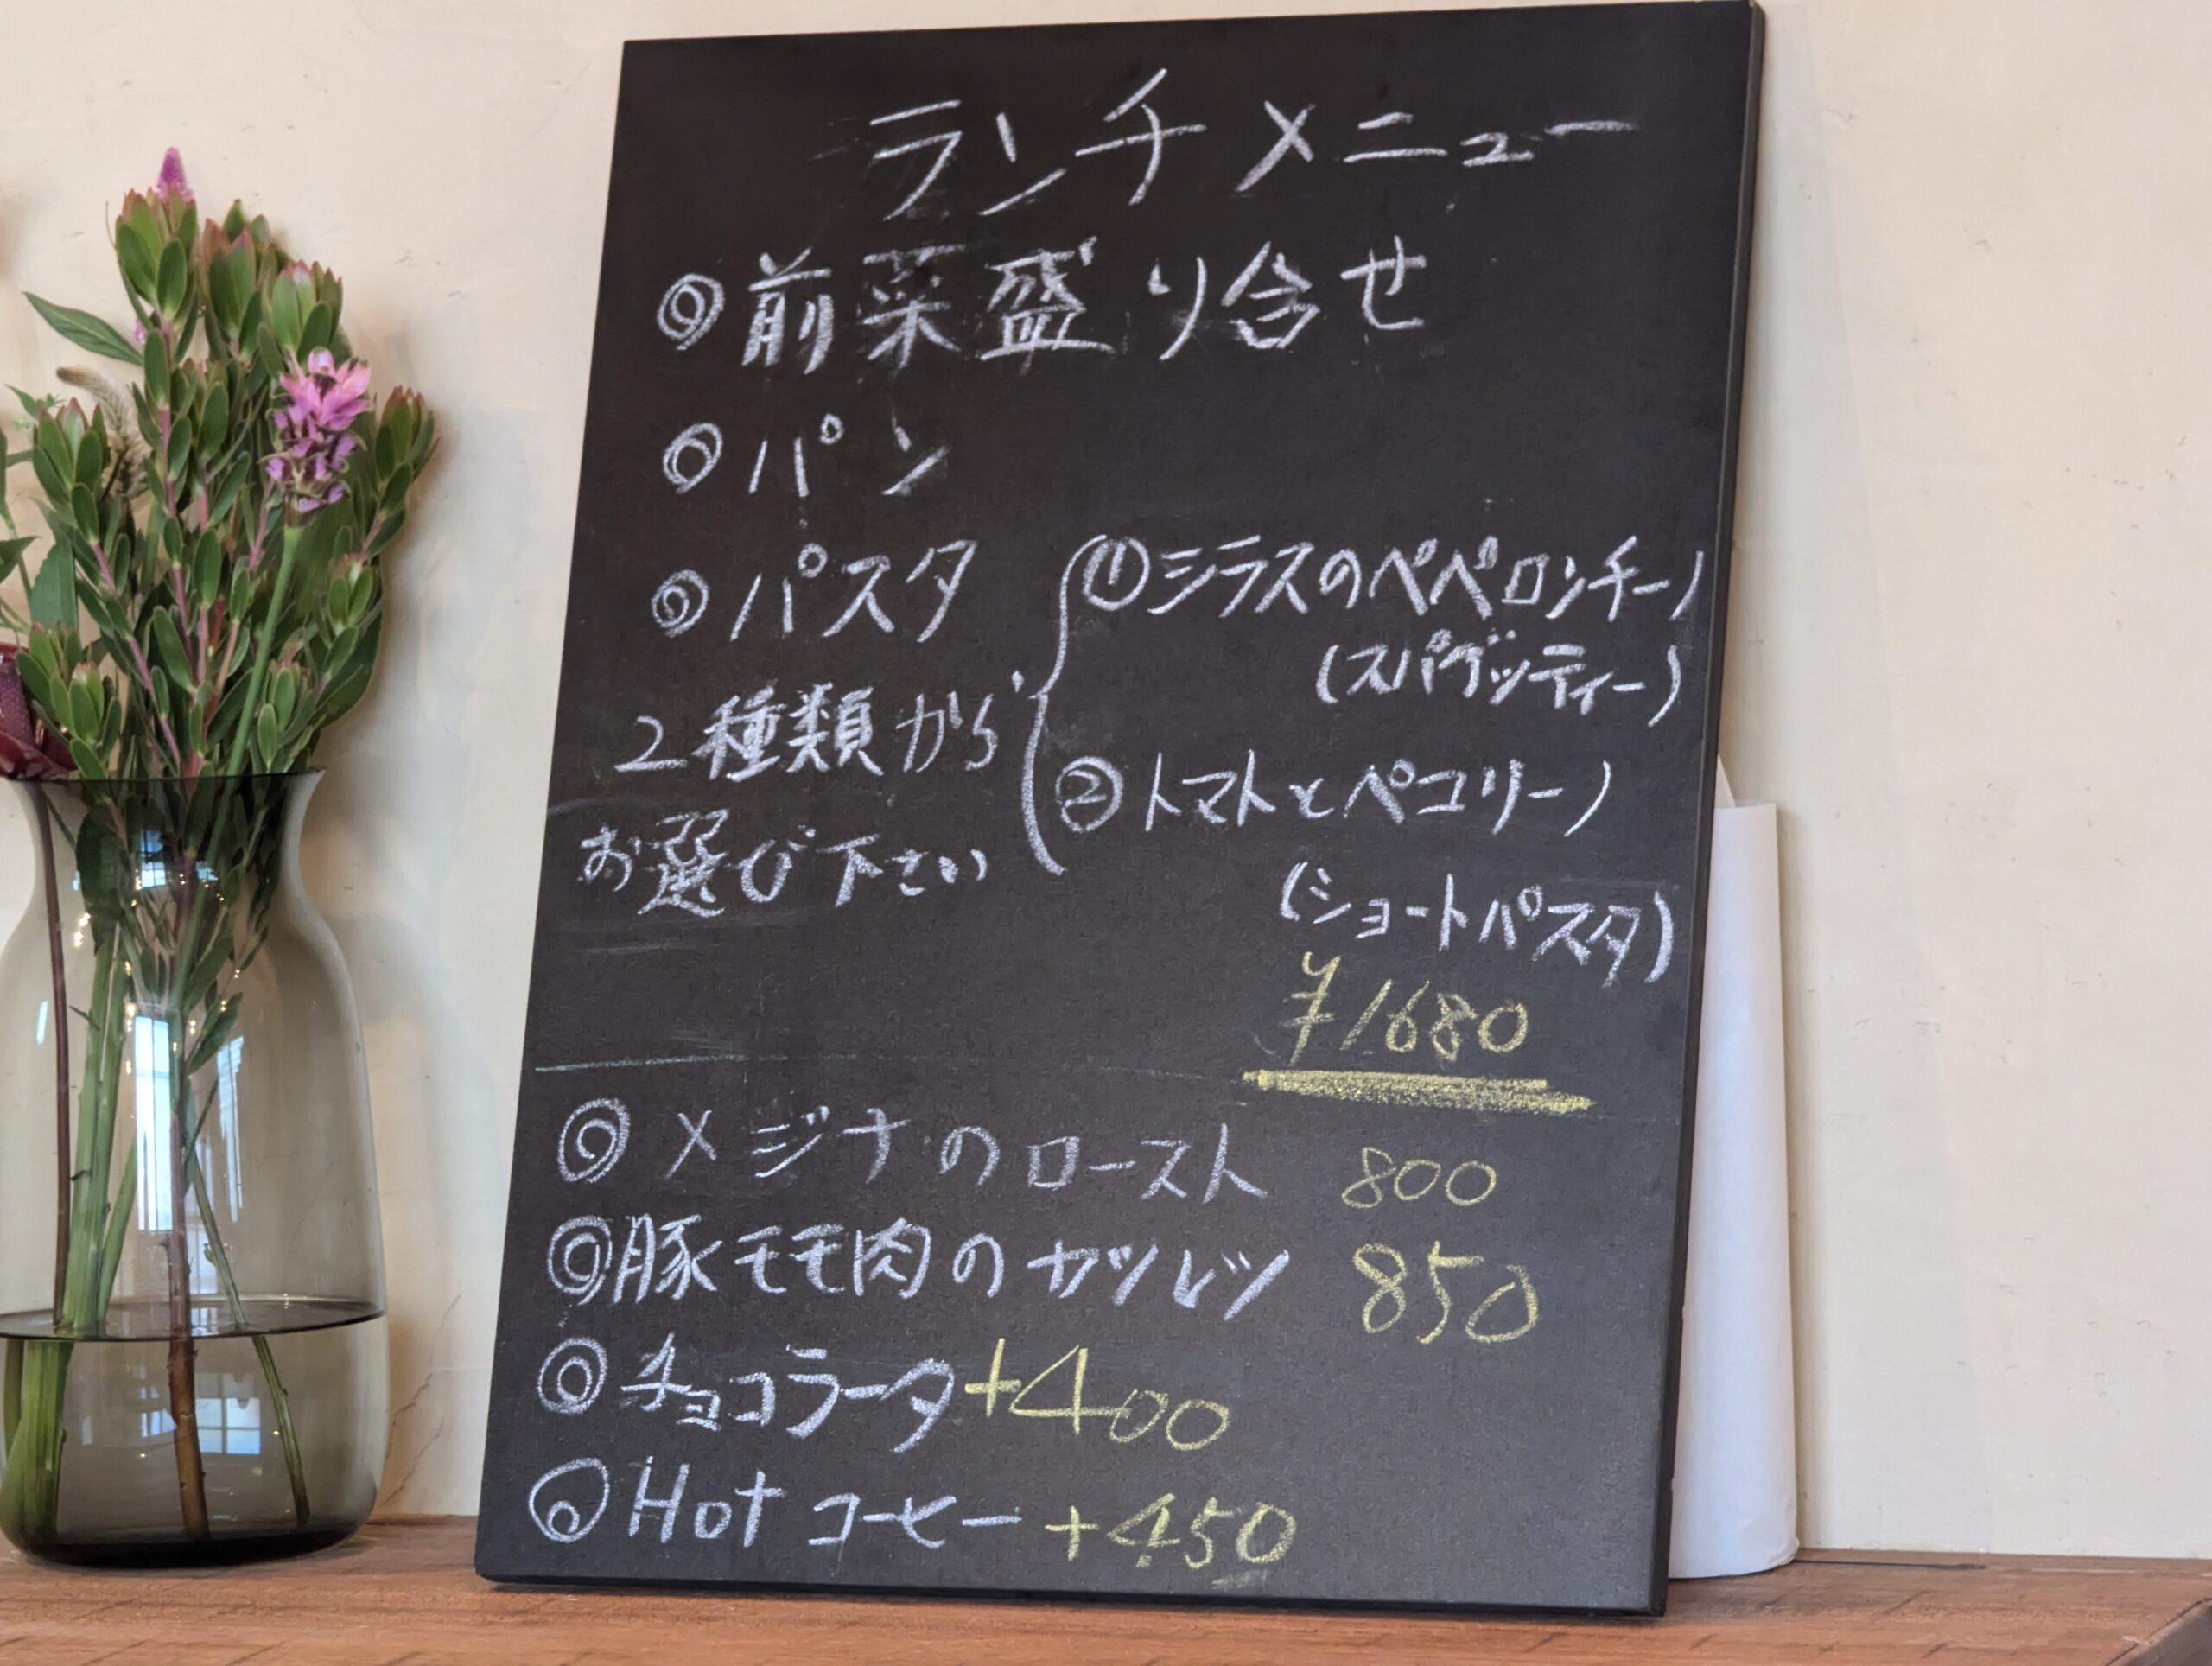 ランチメニュー
◎前菜盛り合せ
◎パン
◎パスタ
2種類から
お選び下さい
①シラスのペペロンチーノ
(スパゲッティー)
②トマトとペコリーノ
(ショートパスタ)
¥1680
◎メジナのロースト 800
◎豚モモ肉のカツレツ 850
◎チョコラータ+400
◎Hotコーヒー+450